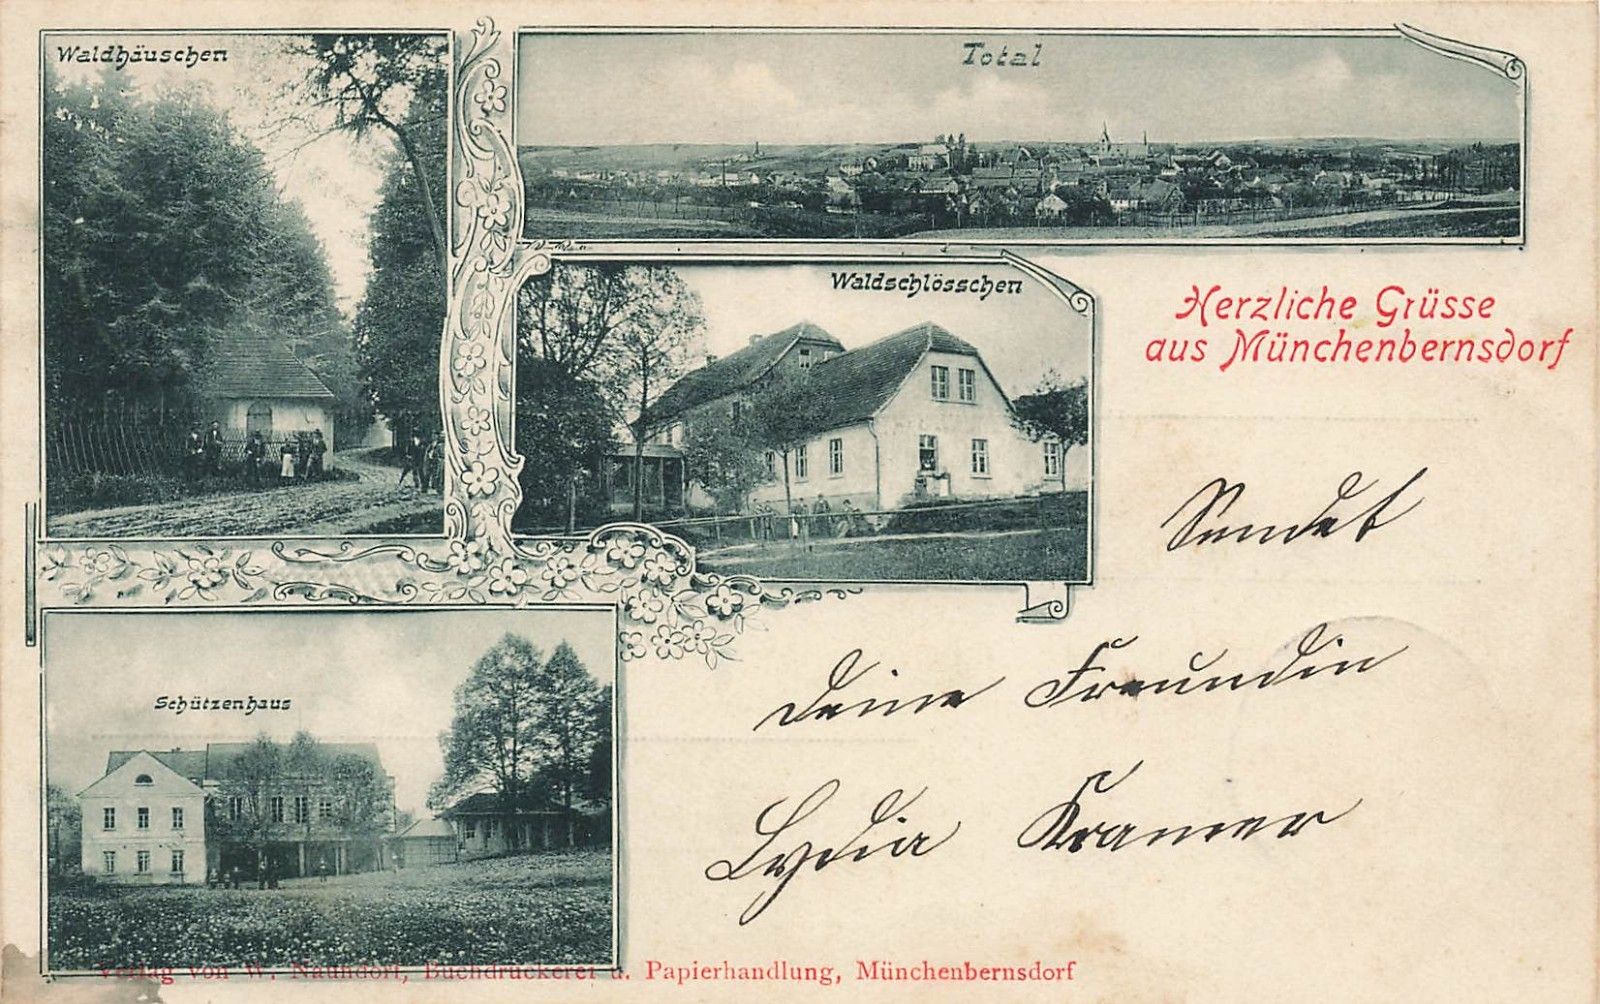 Waldhäuschen
Total
Waldschlösschen
Herzliche Grüsse
aus Münchenbernsdorf
Sendet
Deine Freundin
Lydia Kramer
Schützenhaus
Verlag von W. Naundorf, Buchdruckerei u. Papierhandlung, Münchenbernsdorf